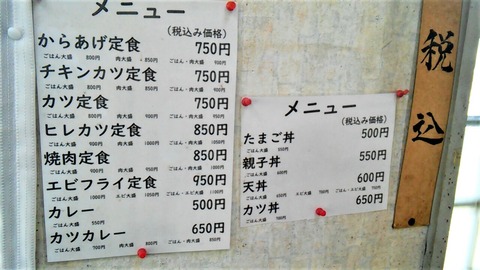 メニュー
(税込み価格)
からあげ定食 750円
ごはん大盛 800円 肉大盛 850円 ごはん・肉大盛 900円
チキンカツ定食 750円
ごはん大盛 800円 肉大盛 850円 ごはん・肉大盛 900円
カツ定食 750円
ごはん大盛 800円 肉大盛 850円 ごはん・肉大盛 900円
ヒレカツ定食 850円
ごはん大盛 900円
焼肉定食 850円
ごはん大盛 900円 肉大盛 950円
エビフライ定食 950円
ごはん大盛 1000円 エビ大盛 1050円 ごはん・エビ大盛 1100円
カレー 500円
ごはん大盛 550円
カツカレー 650円
ごはん大盛 700円 肉大盛 800円 ごはん・肉大盛 850円
メニュー
(税込み価格)
たまご丼 500円
ごはん大盛 550円
親子丼 550円
ごはん大盛 600円
天丼 600円
ごはん大盛 650円 エビ大盛 700円 ごはん・エビ大盛 750円
カツ丼 650円
ごはん大盛 700円
税込